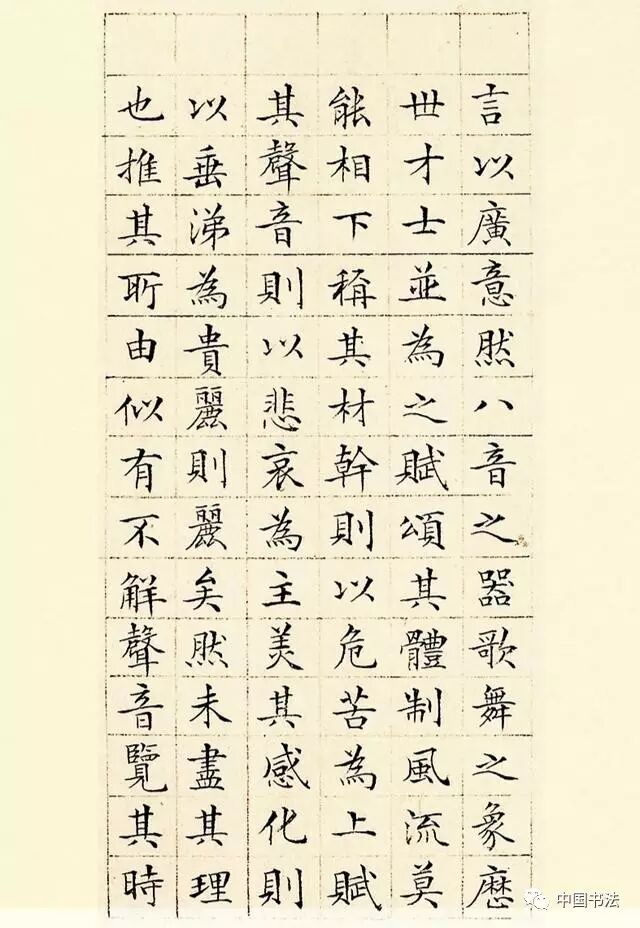 言以廣意然八音之器歌舞之象歷
世才士並為之賦頌其體制風流莫
能相下稱其材幹則以危苦為上賦
其聲音則以悲哀為主美其感化則
以垂涕為貴麗則麗矣然未盡其理
也推其所由似有不解聲音覽其時
中国书法